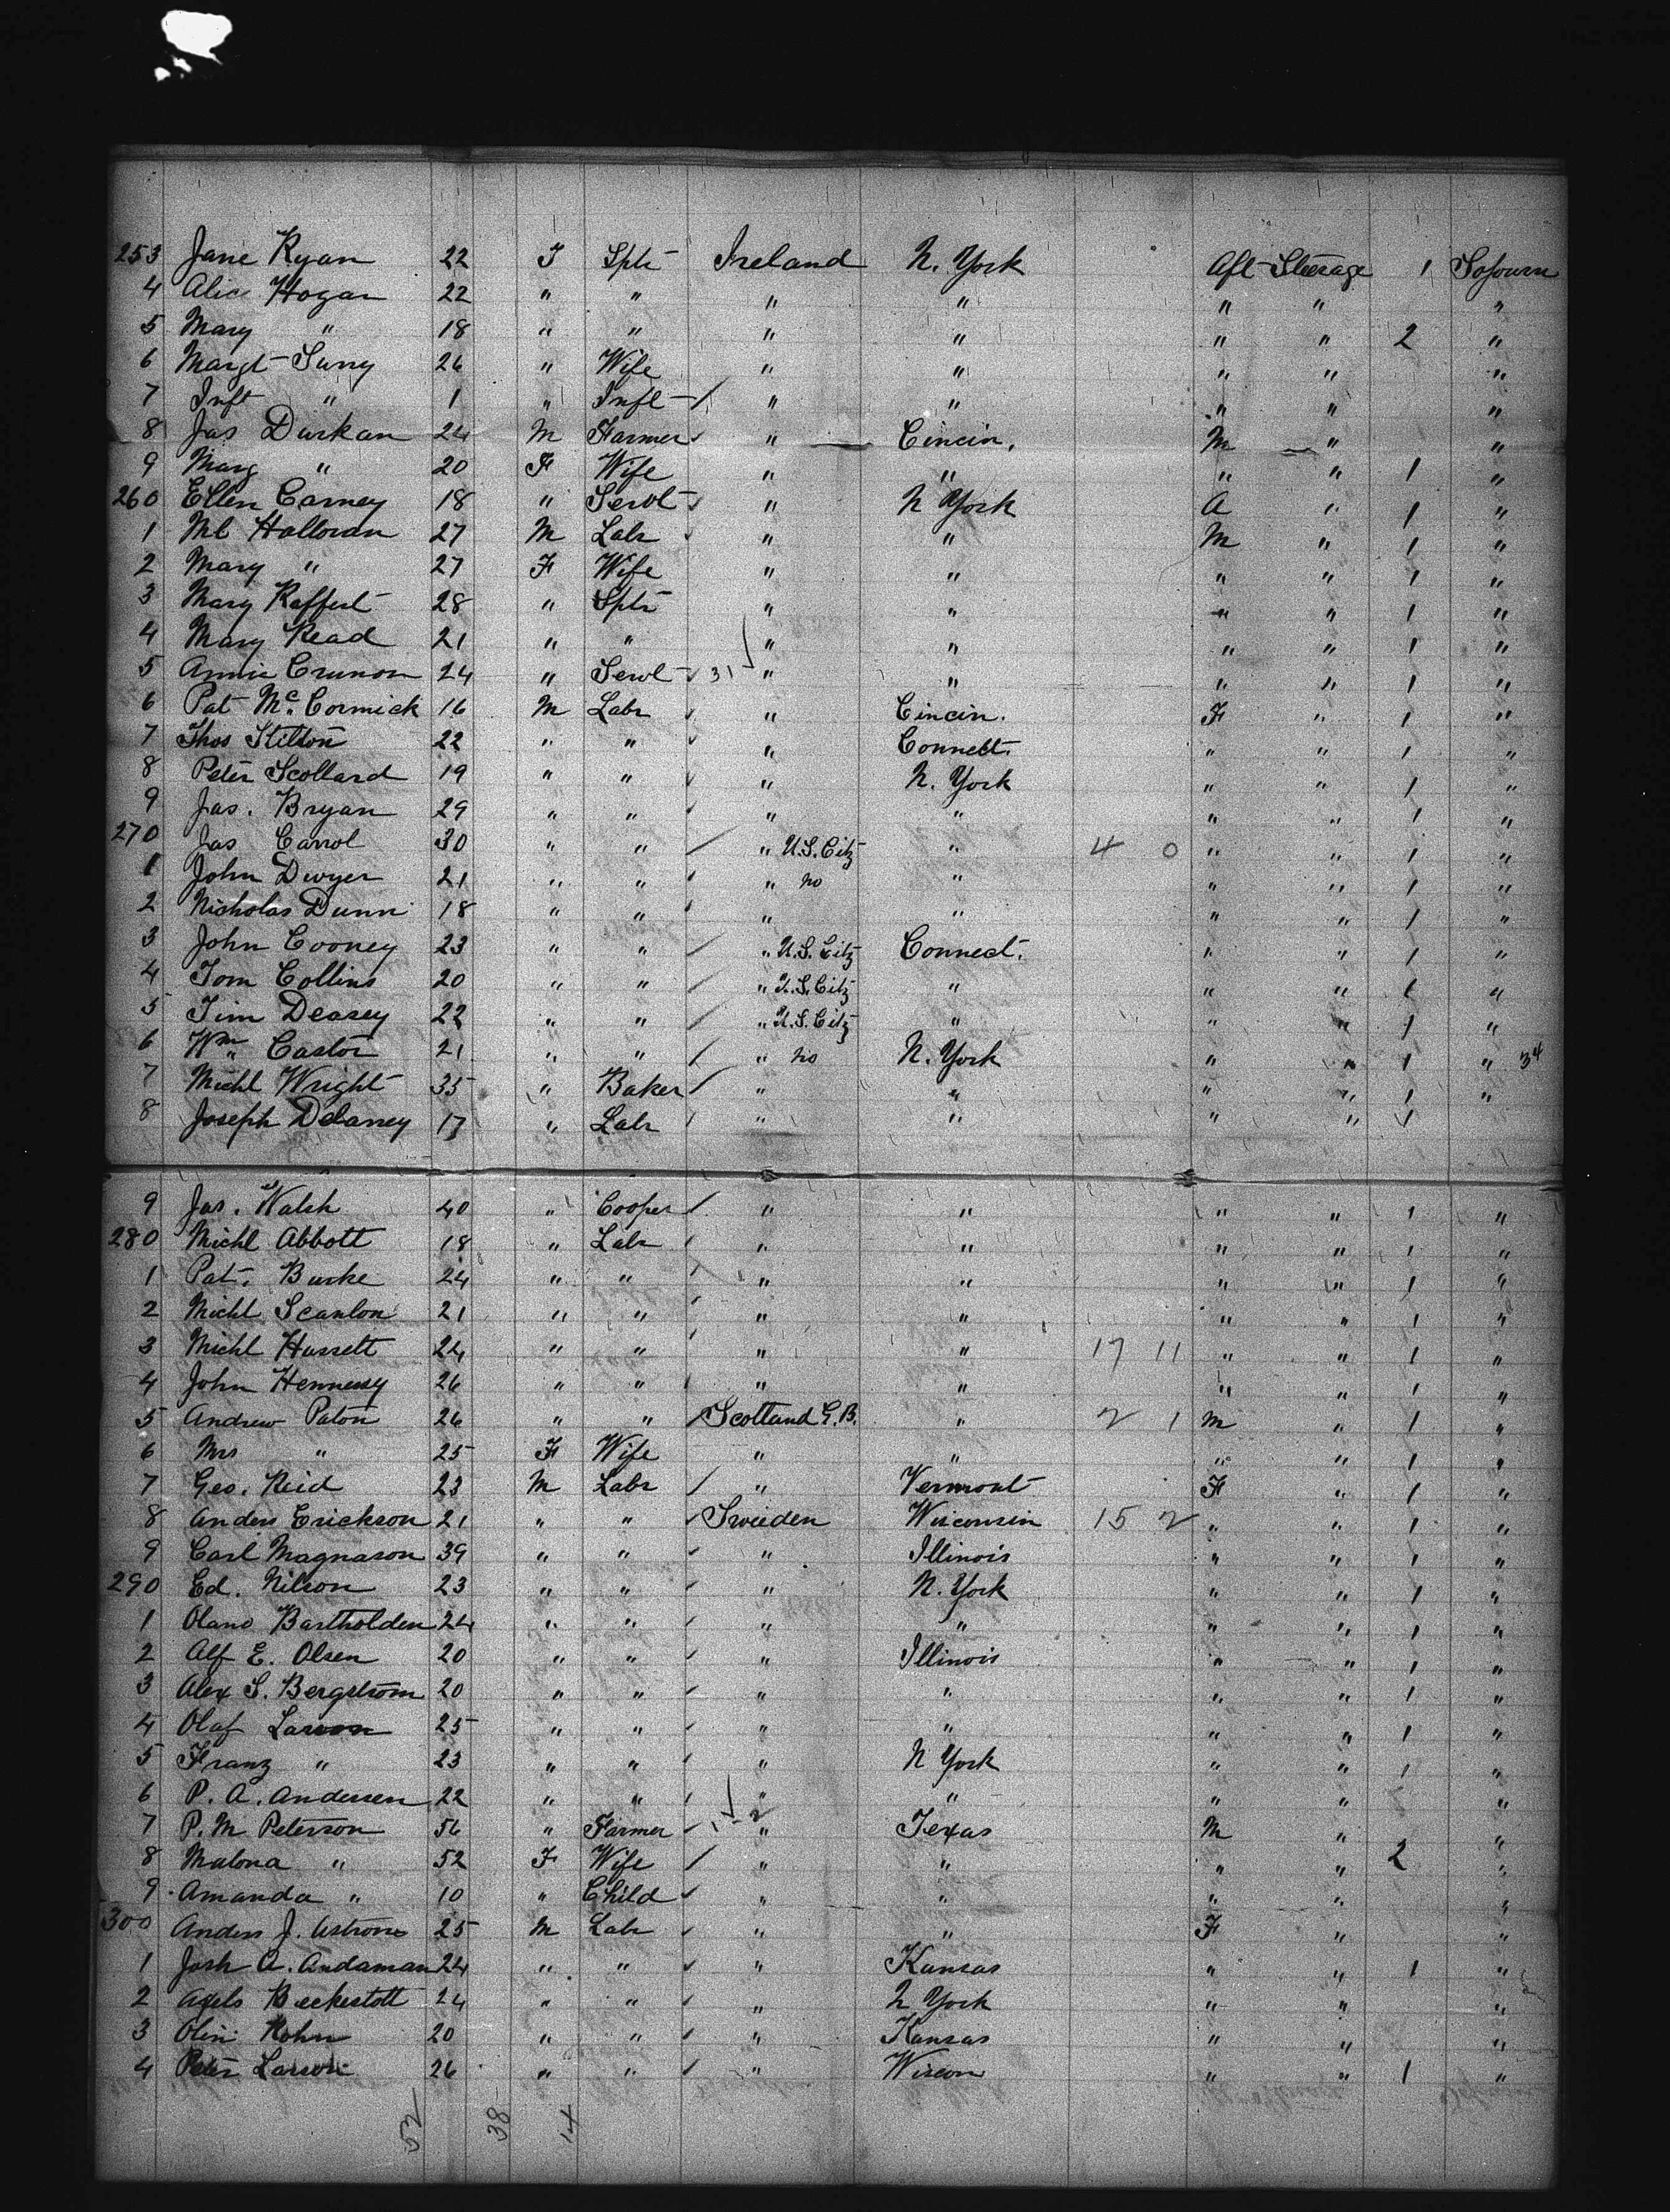 253 Jane Ryan 22 F Sptr Ireland N. York Aft Steerage 1 Sojourn
4 Alice Hogan 22 " " " " " " "
5 Mary " 18 " " " " " " 2 "
6 Margt 26 " Wife " " " " "
7 Inft " 1 " Inft " " " " "
8 Jas Durkan 24 M Farmer " Cincin. M " "
9 Marg " 20 F Wife " " " " 1 "
260 Ellen Carney 18 " Servt " N York A " 1 "
1 Ml Halloran 27 M Labr " " M " 1 "
2 Mary " 27 F Wife " " " " 1 "
3 Mary Raffert 28 " Sptr " " " " 1 "
4 Mary Read 21 " " " " " " 1 "
5 Annie 24 " Servt 31 " " " " 1 "
6 Pat McCormick 16 M Labr " Cincin. F " 1 "
7 Thos 22 " " " Connect. " " 1 "
8 Peter Scollard 19 " " " N. York " " 1 "
9 Jas. Bryan 29 " " " " " " 1 "
270 Jas Carrol 30 " " " U.S. Citz " 4 0 " " 1 "
1 John Dwyer 21 " " " no " " " 1 "
2 Nicholas Dunn 18 " " " " " " 1 "
3 John Cooney 23 " " " U.S. Citz Connect. " " 1 "
4 Tom Collins 20 " " " U.S. Citz " " " 1 "
5 Tim Deasey 22 " " " U.S. Citz " " " 1 "
6 Wm Castor 21 " " " no N. York " " 1 " 34
7 Michl Wright 35 " Baker " " " " 1 "
8 Joseph Delaney 17 " Labr " " " " 1
9 Jas. Walsh 40 " Cooper " " " " 1 "
280 Michl Abbott 18 " Labr " " " " 1 "
1 Pat. Burke 24 " " " " " " 1 "
2 Michl Scanlon 21 " " " " " " 1 "
3 Michl Hassett 24 " " " " 17 11 " " 1 "
4 John Hennessy 26 " " " " " " 1 "
5 Andrew Paton 26 " " Scotland G.B. " 2 1 M " 1 "
6 Mrs " 25 F Wife " " " " 1 "
7 Geo. Reid 23 M Labr " Vermont F " 1 "
8 Anders Erickson 21 " " Sweeden Wisconsin 15 2 " " 1 "
9 Carl Magnason 39 " " " Illinois " " 1 "
290 Ed. Nilson 23 " " " N. York " " 1 "
1 Bartholden 24 " " " " " " 1 "
2 Alf E. Olsen 20 " " " Illinois " " 1 "
3 Alex S. Bergstrom 20 " " " " " " 1 "
4 Olaf Larson 25 " " " " " " 1 "
5 Franz " 23 " " " N York " " 1 "
6 P. A. Andersen 22 " " " " " " "
7 P. M Peterson 56 " Farmer 1-2 " Texas M " "
8 Malona " 52 F Wife " " " " 2 "
9 Amanda " 10 " Child " " " " "
300 Anders J. Astrom 25 M Labr " " F " "
1 Josh A. Andaman 24 " " " Kansas " " 1 "
2 Axels 24 " " " N York " " "
3 Olin Kohn 20 " " " Kansas " " "
4 Peter Larson 26 " " " Wiscon " " 1 "
52 38 14